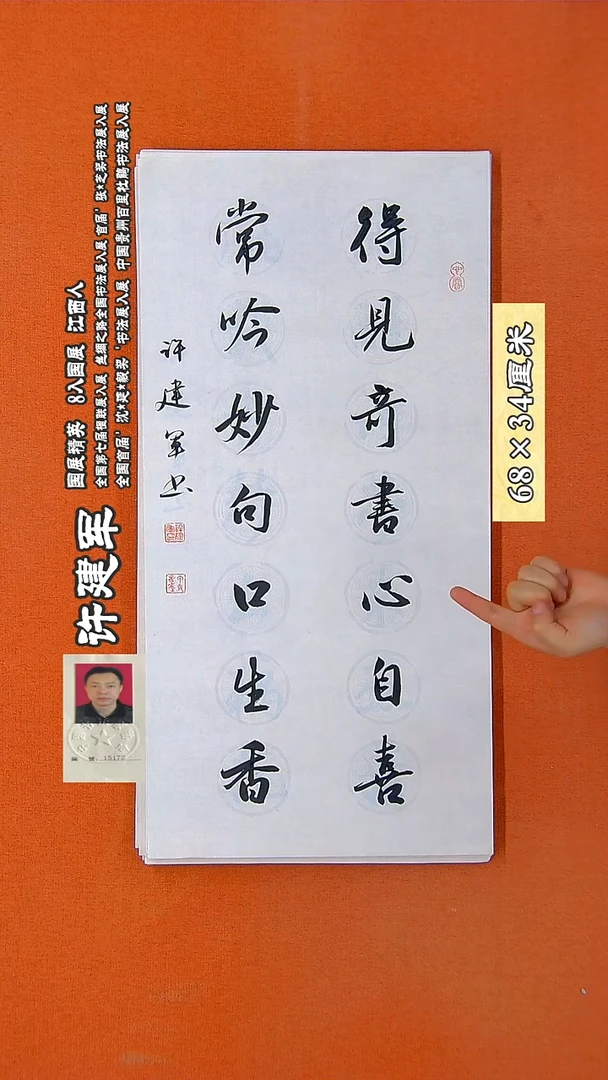 得見奇書心自喜
常吟妙句口生香
许建军书
68×34厘米
许建军
国展精英 8入国展 江西人
全国第七届楹联展入展 丝绸之路全国书法展入展 首届'张★芝奖书法展入展
全国首届'沈★延★毅奖'书法展入展 中国贵州百里杜鹃书法展入展
15172